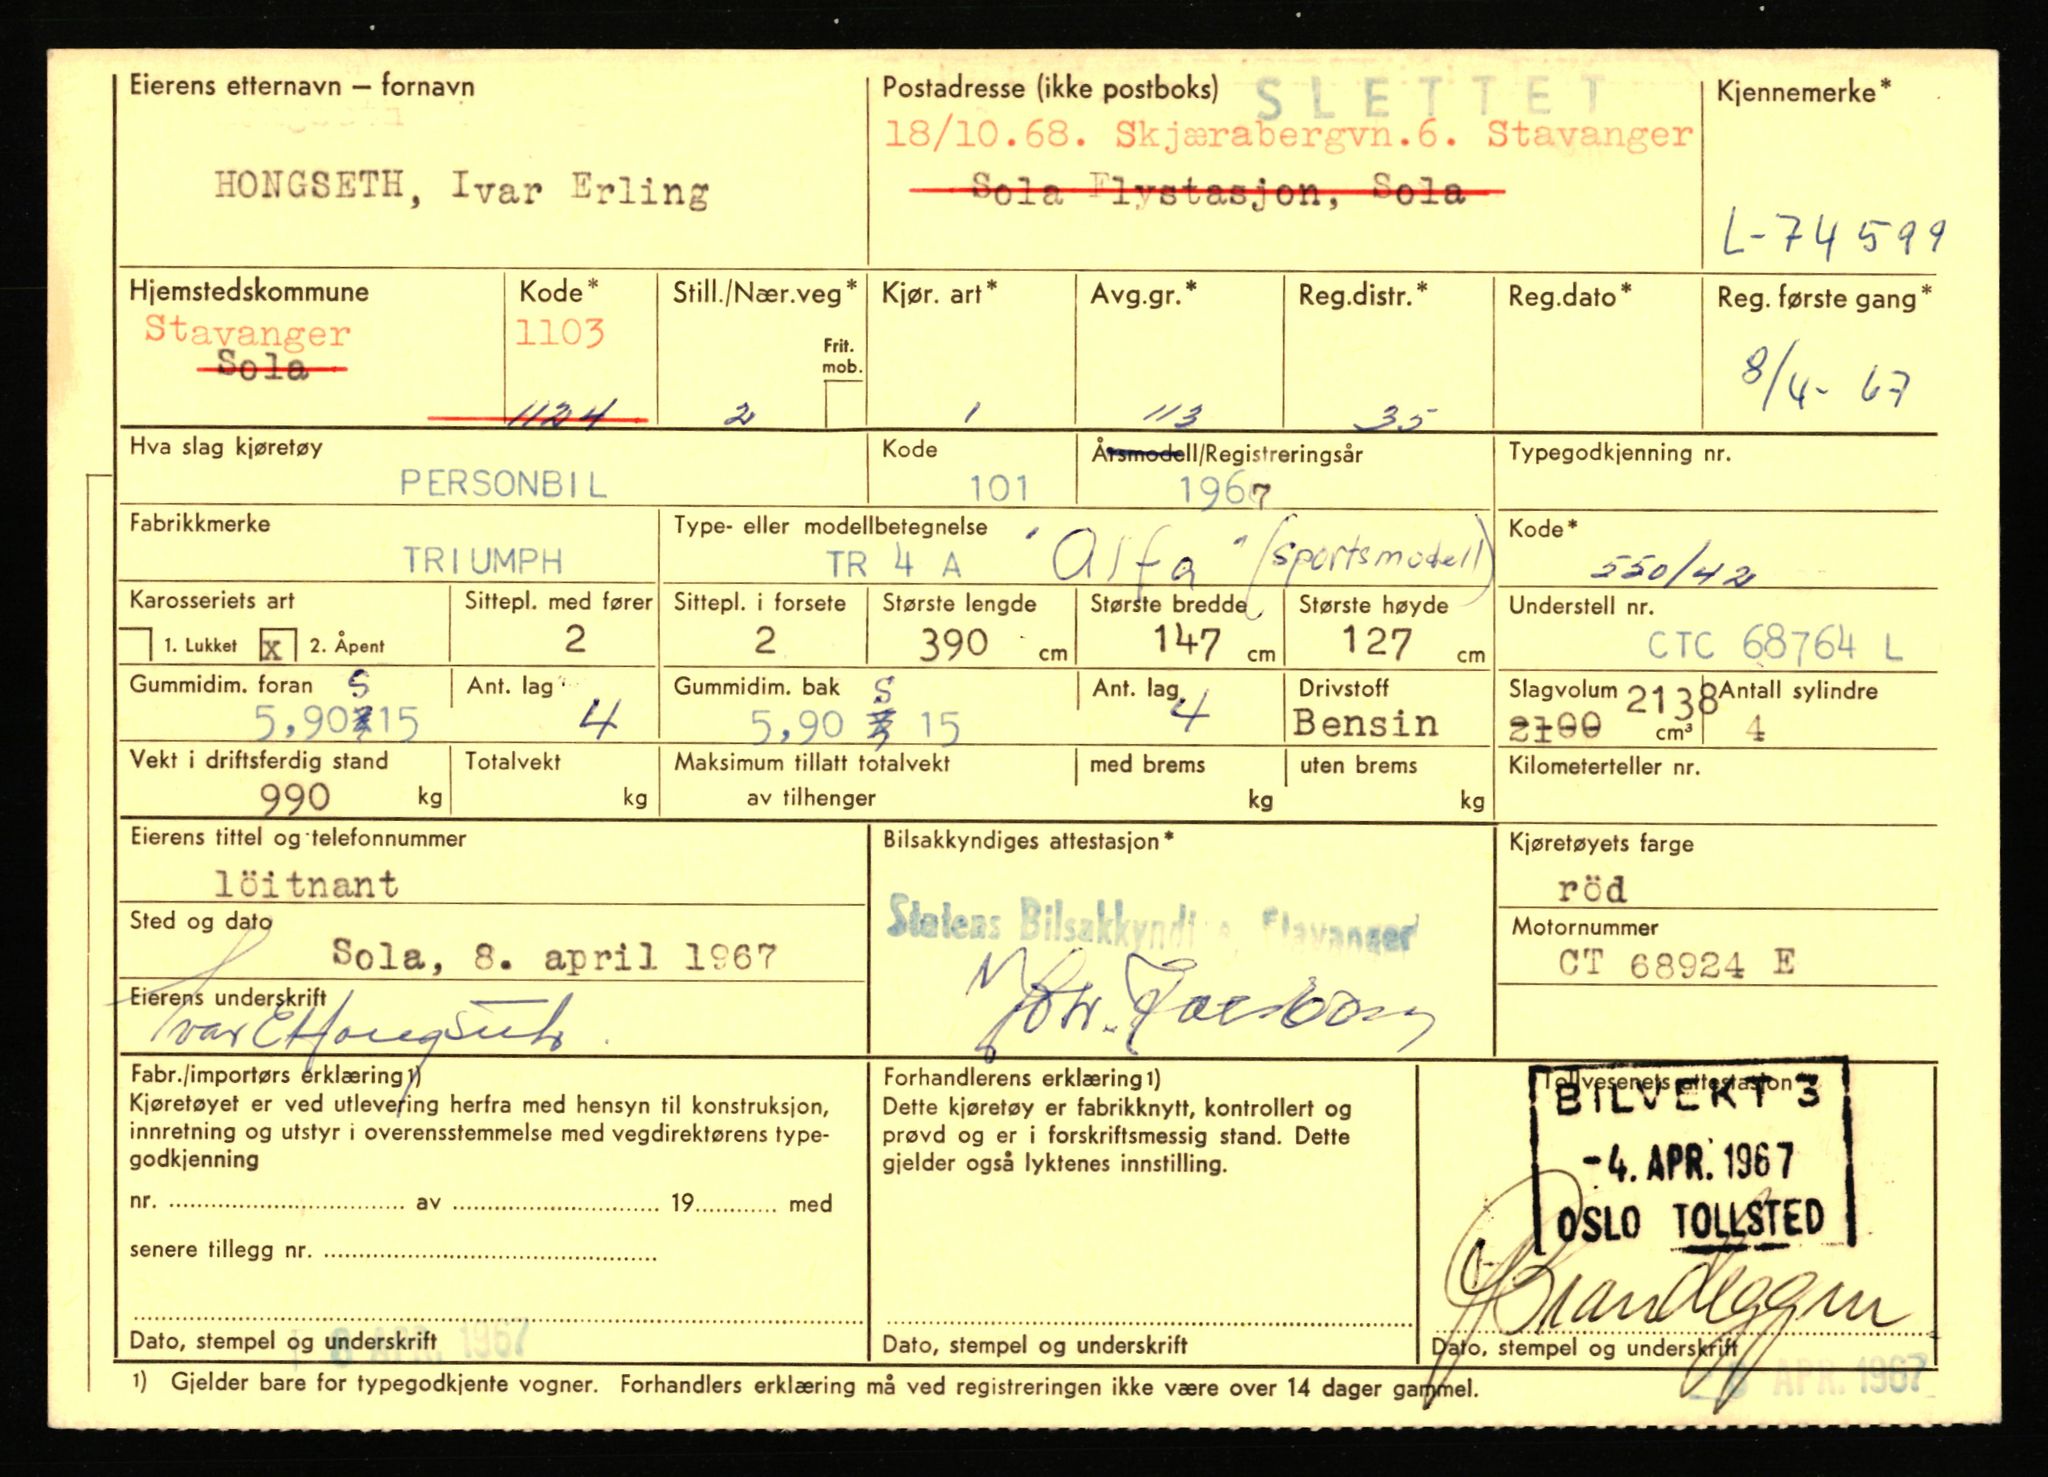 Eierens etternavn – fornavn
HONGSETH, Ivar Erling
Postadresse (ikke postboks)
SLETTET
18/10.68. Skjærabergvn.6. Stavanger
Sola Flystasjon, Sola
Kjennemerke*
L-74599
Hjemstedskommune
Stavanger
Sola
Kode*
1103
1124
Still./Nær.veg*
Frit.
mob.
2
Kjør. art*
1
Avg.gr.*
113
Reg.distr.*
35
Reg.dato*
Reg. første gang*
8/4- 67
Hva slag kjøretøy
PERSONBIL
Kode
101
Årsmodell/Registreringsår
1967
Typegodkjenning nr.
Fabrikkmerke
TRIUMPH
Type- eller modellbetegnelse
TR 4 A "Alfa" (sportsmodell)
Kode*
550/42
Karosseriets art
1. Lukket x 2. Åpent
Sittepl. med fører
2
Sittepl. i forsete
2
Største lengde
390 cm
Største bredde
147 cm
Største høyde
127 cm
Understell nr.
CTC 68764 L
Gummidim. foran
S
5,90 15
Ant. lag
4
Gummidim. bak
S
5,90 15
Ant. lag
4
Drivstoff
Bensin
Slagvolum
2138
2100 cm³
Antall sylindre
4
Vekt i driftsferdig stand
990 kg
Totalvekt
kg
Maksimum tillatt totalvekt
av tilhenger
med brems
kg
uten brems
kg
Kilometerteller nr.
Eierens tittel og telefonnummer
löitnant
Bilsakkyndiges attestasjon*
Statens Bilsakkyndige, Stavanger
Kjøretøyets farge
röd
Sted og dato
Sola, 8. april 1967
Motornummer
CT 68924 E
Eierens underskrift
Ivar E Hongseth
Fabr./importørs erklæring1)
Kjøretøyet er ved utlevering herfra med hensyn til konstruksjon,
innretning og utstyr i overensstemmelse med vegdirektørens type-
godkjenning
nr. ........ av ........ 19........ med
senere tillegg nr. ........
Dato, stempel og underskrift
8 APR. 1967
Forhandlerens erklæring1)
Dette kjøretøy er fabrikknytt, kontrollert og
prøvd og er i forskriftsmessig stand. Dette
gjelder også lyktenes innstilling.
Dato, stempel og underskrift
Tollvesenets attestasjon
BILVEKT 3
-4. APR. 1967
OSLO TOLLSTED
Dato, stempel og underskrift
APR. 1967
1) Gjelder bare for typegodkjente vogner. Forhandlers erklæring må ved registreringen ikke være over 14 dager gammel.